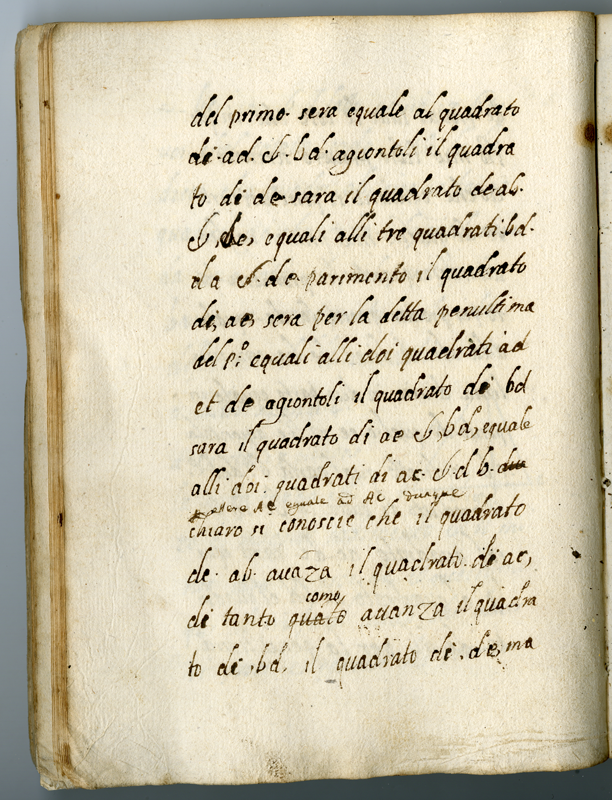 del primo. sera equale al quadrato
di. ad. & . bd. agiontoli il quadra
to di de sara il quadrato de ab.
& be, equali alli tre quadrati. bd.
da & . de parimento il quadrato
di, ae, sera per la detta penultima
del p.º equali alli doi quadrati ad
et de agiontoli il quadrato di bd
sara il quadrato di ae & bd, equale
alli doi quadrati di ae & d b.
essere Ac equale ad Ac dunque
chiaro si conoscie che il quadrato
de ab. avaza il quadrato di ae,
como
di tanto quato avanza il quadra
to di .bd. il quadrato di .de, ma